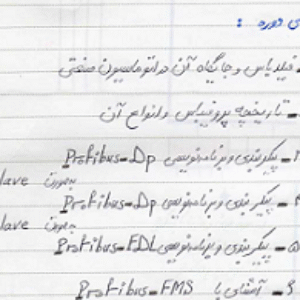 ی دوره :
فیلدباس و جایگاه آن در اتوماسیون صنعتی
- تاریخچه پروفیباس و انواع آن
۳- پیکربندی و برنامه‌نویسی Profibus-Dp بصورت lave
۴- پیکربندی و برنامه‌نویسی Profibus-Dp بصورت lave
۵- پیکربندی و برنامه‌نویسی Profibus-FDL
۶- آشنایی با Profibus-FMS